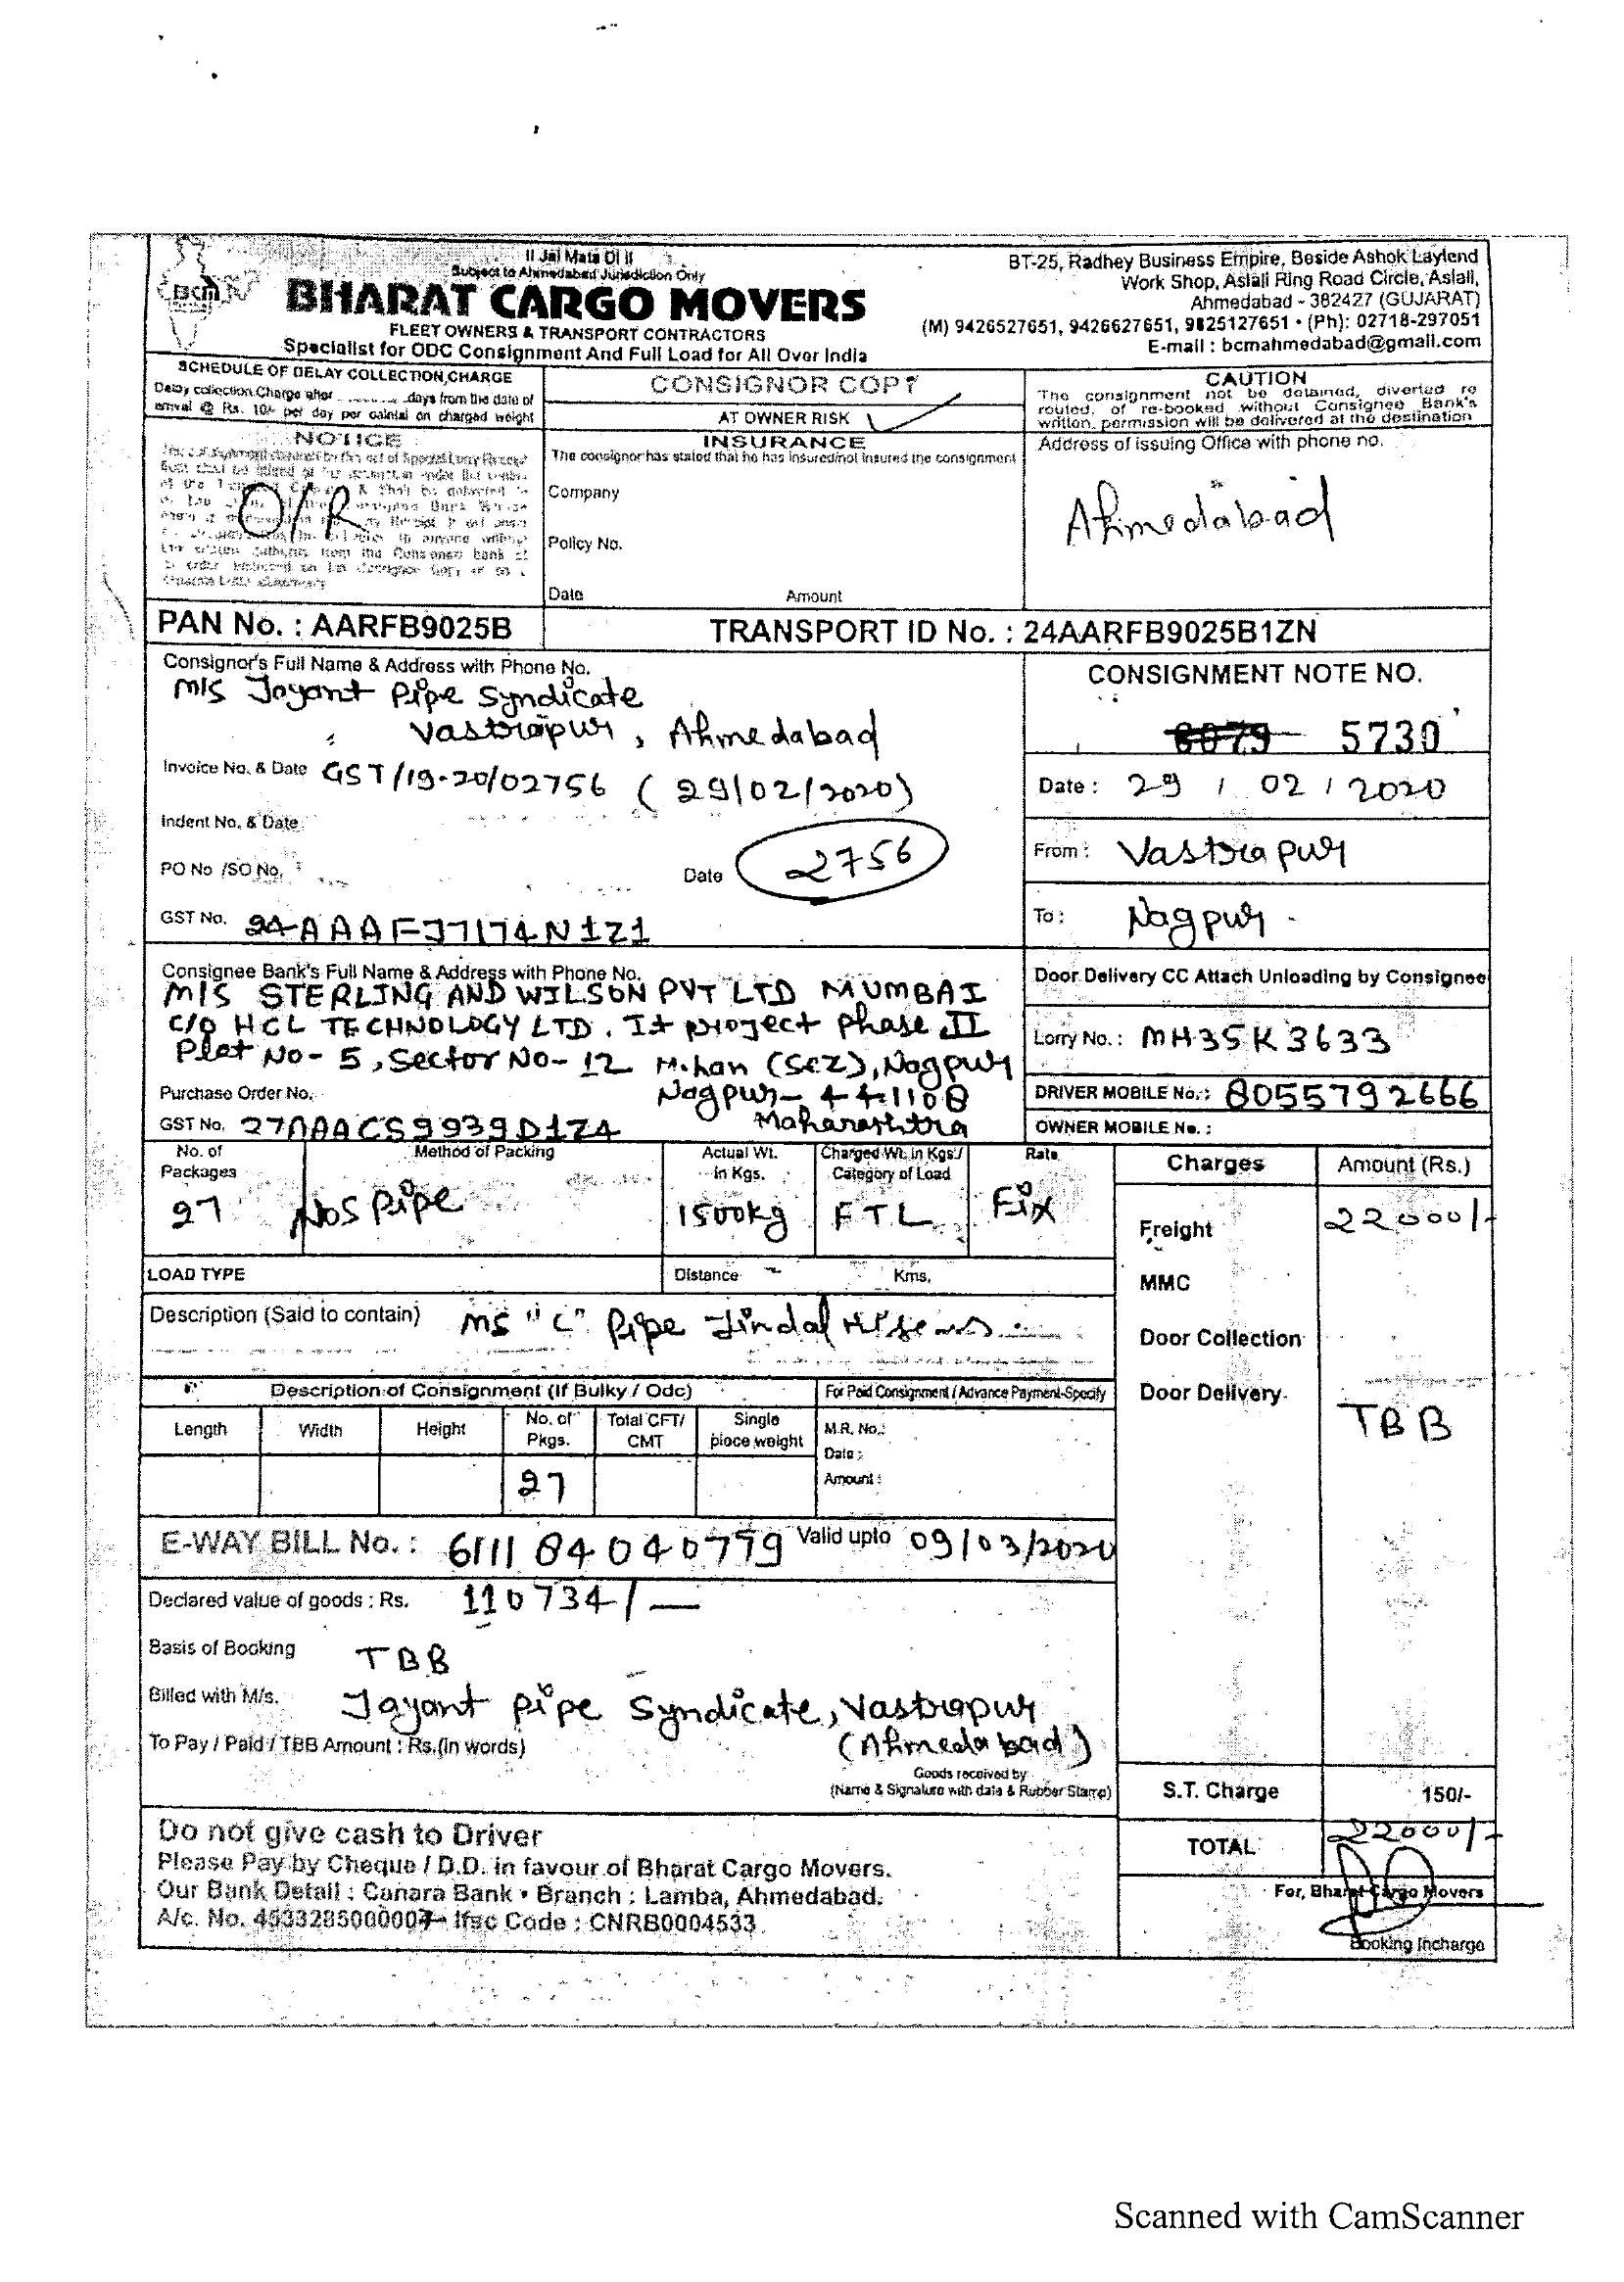 II Jai Mata Di II
Subject to Ahmedabad Jurisdiction Only
BCM
BHARAT CARGO MOVERS
FLEET OWNERS & TRANSPORT CONTRACTORS
Specialist for ODC Consignment And Full Load for All Over India
BT-25, Radhey Business Empire, Beside Ashok Laylend
Work Shop, Aslali Ring Road Circle, Aslali,
Ahmedabad - 382427 (GUJARAT)
(M) 9426527651, 9426627651, 9825127651 • (Ph): 02718-297051
E-mail : bcmahmedabad@gmail.com
SCHEDULE OF DELAY COLLECTION CHARGE
Delay collection Charge after ......... days from the date of
arrival @ Rs. 10/- per day per quintal on charged weight
CONSIGNOR COPY
AT OWNER RISK
CAUTION
The consignment not be detained, diverted re
routed, of re-booked without Consignee Bank's
written permission will be delivered at the destination
NOTICE
O/R
INSURANCE
The consignor has stated that he has insured/not insured the consignment
Company
Policy No.
Date Amount
Address of issuing Office with phone no.
Ahmedabad
PAN No. : AARFB9025B
TRANSPORT ID No. : 24AARFB9025B1ZN
Consignor's Full Name & Address with Phone No.
M/S Jayant Pipe Syndicate
Vastrapur, Ahmedabad
Invoice No. & Date GST/19-20/02756 (29/02/2020)
Indent No. & Date
PO No /SO No. Date 2756
GST No. 24AAAFJ7174N1Z1
CONSIGNMENT NOTE NO.
8079 5730
Date : 29 / 02 / 2020
From : Vastrapur
To : Nagpur
Consignee Bank's Full Name & Address with Phone No.
M/S STERLING AND WILSON PVT LTD MUMBAI
C/O HCL TECHNOLOGY LTD. It project phase II
Plot No- 5, Sector No- 12 Mihan (Sez), Nagpur
Purchase Order No. Nagpur- 441108
GST No. 27AAACS9939D1Z4 Maharashtra
Door Delivery CC Attach Unloading by Consignee
Lorry No. : MH35K3633
DRIVER MOBILE No. : 8055792666
OWNER MOBILE No. :
No. of Packages Method of Packing Actual Wt. in Kgs. Charged Wt. in Kgs./ Category of Load Rate Charges Amount (Rs.)
27 Nos Pipe 1500kg FTL Fix
Freight 22000/-
LOAD TYPE Distance Kms.
MMC
Description (Said to contain) MS "C" Pipe Jindal
Door Collection
Description of Consignment (If Bulky / Odc)
For Paid Consignment / Advance Payment-Specify
Door Delivery
TBB
Length Width Height No. of Pkgs. Total CFT/ CMT Single piece weight
M.R. No.:
Date :
Amount :
27
E-WAY BILL No. : 611184040779 Valid upto 09/03/2020
Declared value of goods : Rs. 110734/-
Basis of Booking TBB
Billed with M/s. Jayant Pipe Syndicate, Vastrapur
To Pay / Paid / TBB Amount : Rs.(in words) (Ahmedabad)
Goods received by
(Name & Signature with date & Rubber Stamp)
S.T. Charge 150/-
TOTAL 22000/-
Do not give cash to Driver
Please Pay by Cheque / D.D. in favour of Bharat Cargo Movers.
Our Bank Detail : Canara Bank • Branch : Lamba, Ahmedabad.
A/c. No. 4533285000007 Ifsc Code : CNRB0004533
For, Bharat Cargo Movers
Booking Incharge
Scanned with CamScanner